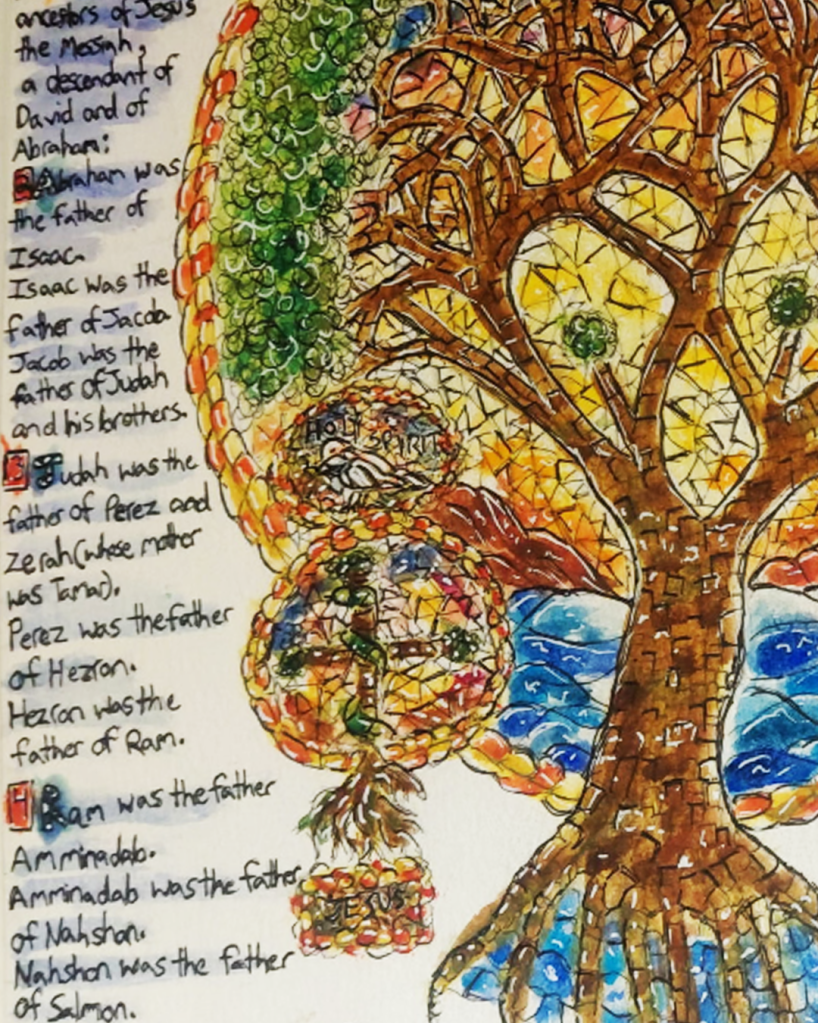 ancestors of Jesus
the Messiah,
a descendant of
David and of
Abraham:
2 Abraham was
the father of
Isaac.
Isaac was the
father of Jacob
Jacob was the
father of Judah
and his brothers.
3 Judah was the
father of Perez and
Zerah (whose mother
was Tamar).
Perez was the father
of Hezron.
Hezron was the
father of Ram.
4 Ram was the father
Amminadab.
Amminadab was the father
of Nahshon.
Nahshon was the father
of Salmon.
HOLY SPIRIT
JESUS